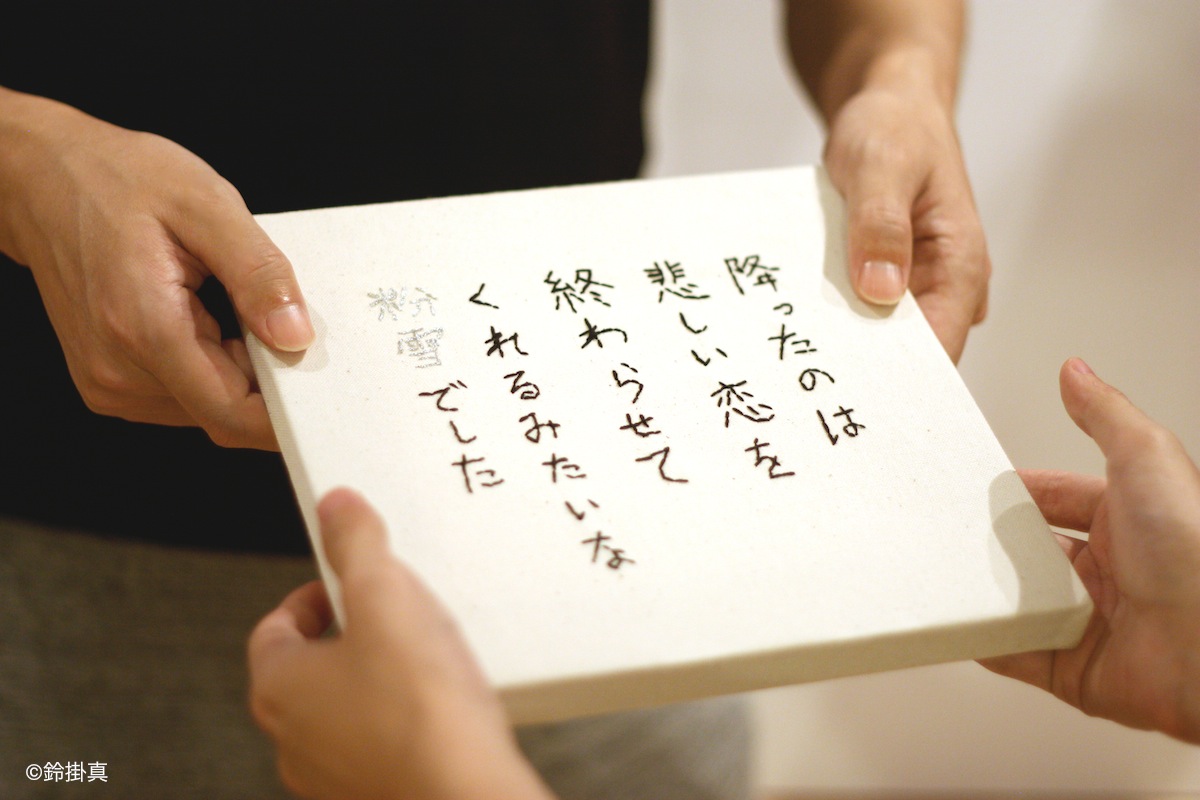 降ったのは
悲しい恋を
終わらせて
くれるみたいな
粉雪でした
©鈴掛真